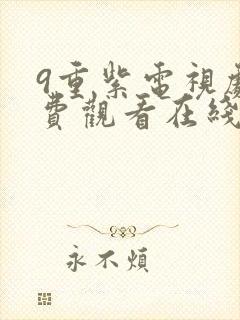 9重紫電視劇
費觀看在綫
永不煩